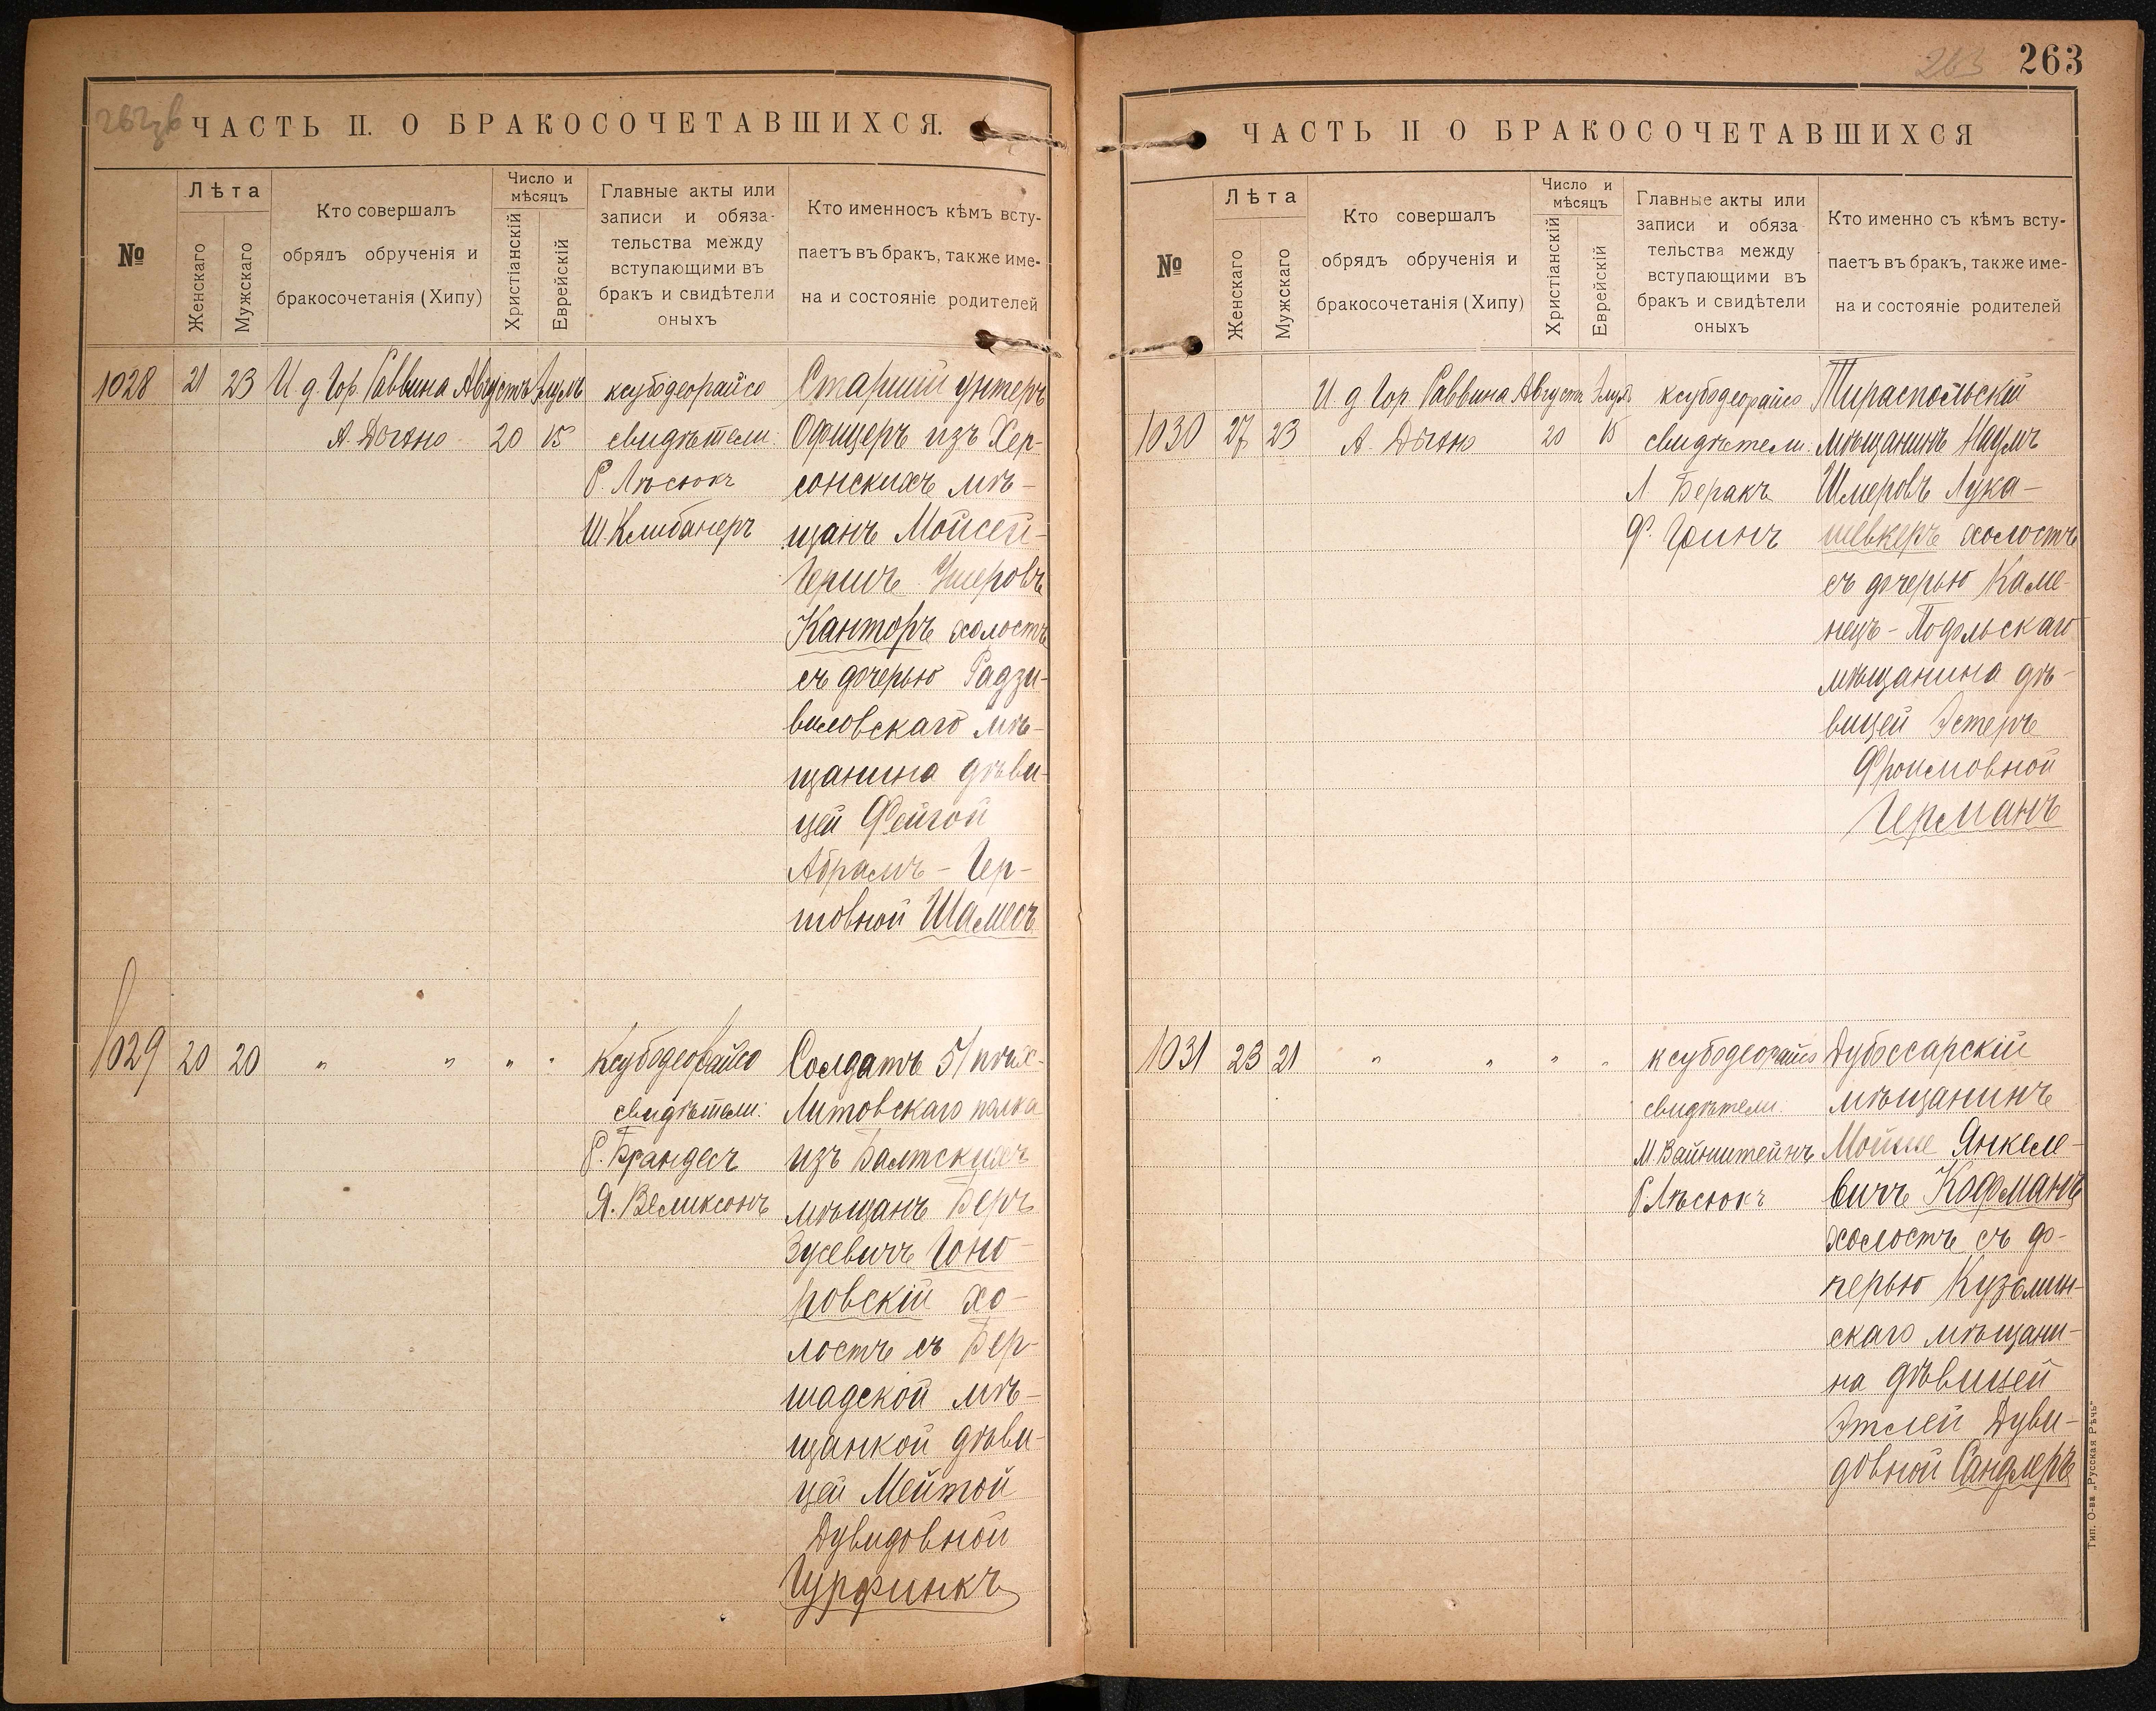 ЧАСТЬ II. О БРАКОСОЧЕТАВШИХСЯ.
№
Лѣта
Женскаго
Мужскаго
Кто совершалъ
обрядъ обрученія и
бракосочетанія (Хипу)
Число и
мѣсяцъ
Христіанскій
Еврейскій
Главные акты или
записи и обяза-
тельства между
вступающими въ
бракъ и свидѣтели
оныхъ
Кто именносъ кѣмъ всту-
паетъ въ бракъ, также име-
на и состояніе родителей
1028 21 23
И. д. Гор. Раввина
А. Дыхно
Августъ
20
Элулъ
15
ксубодеорайсо
свидѣтели:
Р. Лѣсюкъ
Ш. Клибанеръ
Старшій унтеръ
Офицеръ изъ Хер-
сонскихъ мѣ-
щанъ Мойсей-
Гершъ Ушеровъ
Канторъ холостъ
съ дочерью Радзи-
виловскаго мѣ-
щанина дѣви-
цей Фейгой
Абрамъ-Гер-
шовной Шамесъ
1029 20 20
" " " "
ксубодеорайсо
свидѣтели:
Р. Брандесъ
Я. Великсонъ
Солдатъ 51 пѣх.
Литовскаго полка
изъ Балтскихъ
мѣщанъ Беръ
Зусевичъ Гоно-
ровскій хо-
лостъ съ Бер-
шадской мѣ-
щанкой дѣви-
цей Мейтой
Дувидовной
Гурфинкъ
263
263
ЧАСТЬ II О БРАКОСОЧЕТАВШИХСЯ
№
Лѣта
Женскаго
Мужскаго
Кто совершалъ
обрядъ обрученія и
бракосочетанія (Хипу)
Число и
мѣсяцъ
Христіанскій
Еврейскій
Главные акты или
записи и обяза
тельства между
вступающими въ
бракъ и свидѣтели
оныхъ
Кто именно съ кѣмъ всту-
паетъ въ бракъ, также име-
на и состояніе родителей
1030 27 23
И д Гор Раввина
А. Дыхно
Августъ
20
Элулъ
15
ксубодеорайсо
свидѣтели:
Л Беракъ
Ф. Гринъ
Тираспольскій
мѣщанинъ Наумъ
Шмеровъ Лука-
шевкеръ холостъ
съ дочерью Каме-
нецъ-Подольскаго
мѣщанина дѣ-
вицей Эстеръ
Фроимовной
Германъ
1031 23 21
" " " "
ксубодеорайсо
свидѣтели:
М. Вайнштейнъ
Р. Лѣсюкъ
Дубоссарскій
мѣщанинъ
Мойше Янкеле-
вичъ Кофманъ
холостъ съ до-
черью Кузьмин-
скаго мѣщани-
на дѣвицей
Этлей Дуви-
довной Сандлеръ
Тип. О-ва „Русская Рѣчь"